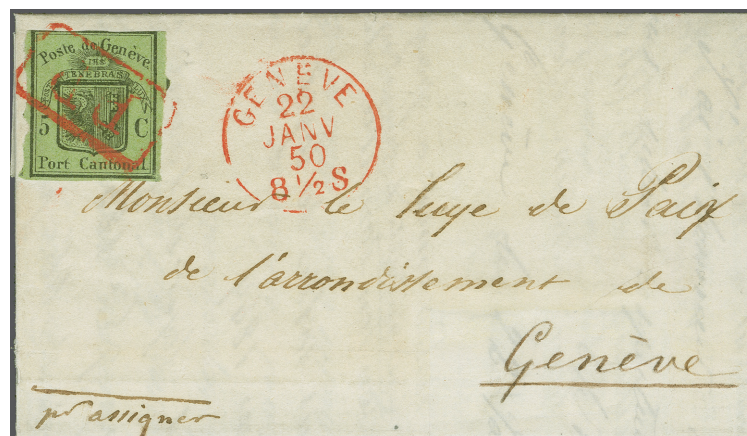 Poste de Genève
POST TENEBRAS LUX
5 C
Port Cantonal
GENÈVE
22
JANV
50
8 ½ S
Monsieur le Juge de Paix
de l'arrondissement de
Genève
pr assigner